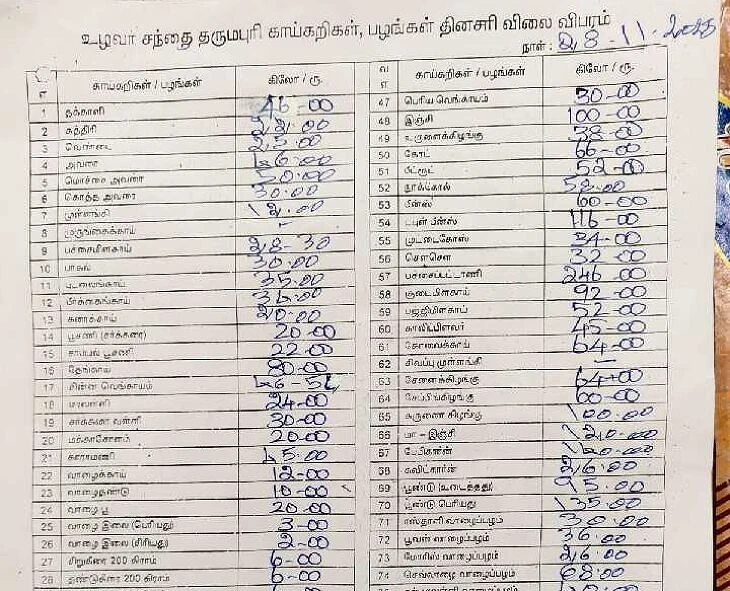 உழவர் சந்தை தருமபுரி காய்கறிகள், பழங்கள் தினசரி விலை விபரம்
நாள் : 28-11-2025
காய்கறிகள் / பழங்கள் கிலோ / ரூ.
1 தக்காளி 46-00
2 கத்திரி
3 வெண்டை
4 அவரை
5 மொச்சை அவரை 50.00
6 கொத்த அவரை 30.00
7 முள்ளங்கி 12.00
8 முருங்கைக்காய் -
9 பச்சைமிளகாய் 28-30
10 பாகல் 30.00
11 புடலைங்காய் 35.00
12 பீர்க்கங்காய்
13 சுரைக்காய் 20.00
14 பூசணி (சர்க்கரை) 20-00
15 சாம்பல் பூசணி 22-00
16 தேங்காய்
17 சின்ன வெங்காயம்
18 மாவள்ளி 24-00
19 சர்க்கரை வள்ளி 30-00
20 மக்காசோளம் 20-00
21 காராமணி
22 வாழைக்காய் 12-00
23 வாழைதண்டு 10-00
24 வாழை பூ 20-00
25 வாழை இலை (பெரியது) 3-00
26 வாழை இலை (சிறியது) 2-00
27 சிறுகீரை 200 கிராம் 6-00
28 தண்டுகீரை 200 கிராம் 6-00
வ எ காய்கறிகள் / பழங்கள் கிலோ / ரூ.
47 பெரிய வெங்காயம் 30-00
48 இஞ்சி 100-00
49 உருளைக்கிழங்கு 38-00
50 கேரட் 66-00
51 பீட்ரூட் 52-00
52 நூக்கோல் 58.00
53 பீன்ஸ் 60-00
54 டபுள் பீன்ஸ் 116-00
55 முட்டைகோஸ் 34-00
56 சௌசௌ 32-00
57 பச்சைப்பட்டாணி 246-00
58 குடைமிளகாய் 92-00
59 பஜ்ஜிமிளகாய் 52-00
60 காலிப்ளவர் 45-00
61 கோவைக்காய் 64-00
62 சிவப்பு முள்ளங்கி -
63 சேனைக்கிழங்கு 64-00
64 சேப்பங்கிழங்கு 60-00
65 கருணை கிழங்கு 100.00
66 மா - இஞ்சி 120.00
67 பேபிகார்ன்
68 சுவிட்கார்ன் 26.00
69 பூண்டு (உடைத்தது) 95.00
70 பூண்டு பெரியது 135.00
71 ரஸ்தாளி வாழைப்பழம் 30.00
72 பூவன் வாழைப்பழம் 36.00
73 மோரிஸ் வாழைப்பழம் 26.00
74 செவ்வாழை வாழைப்பழம் 68.00